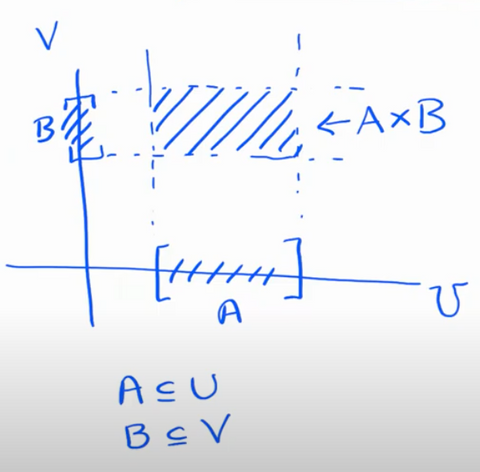 V
B
← A × B
U
A
A ⊆ U
B ⊆ V